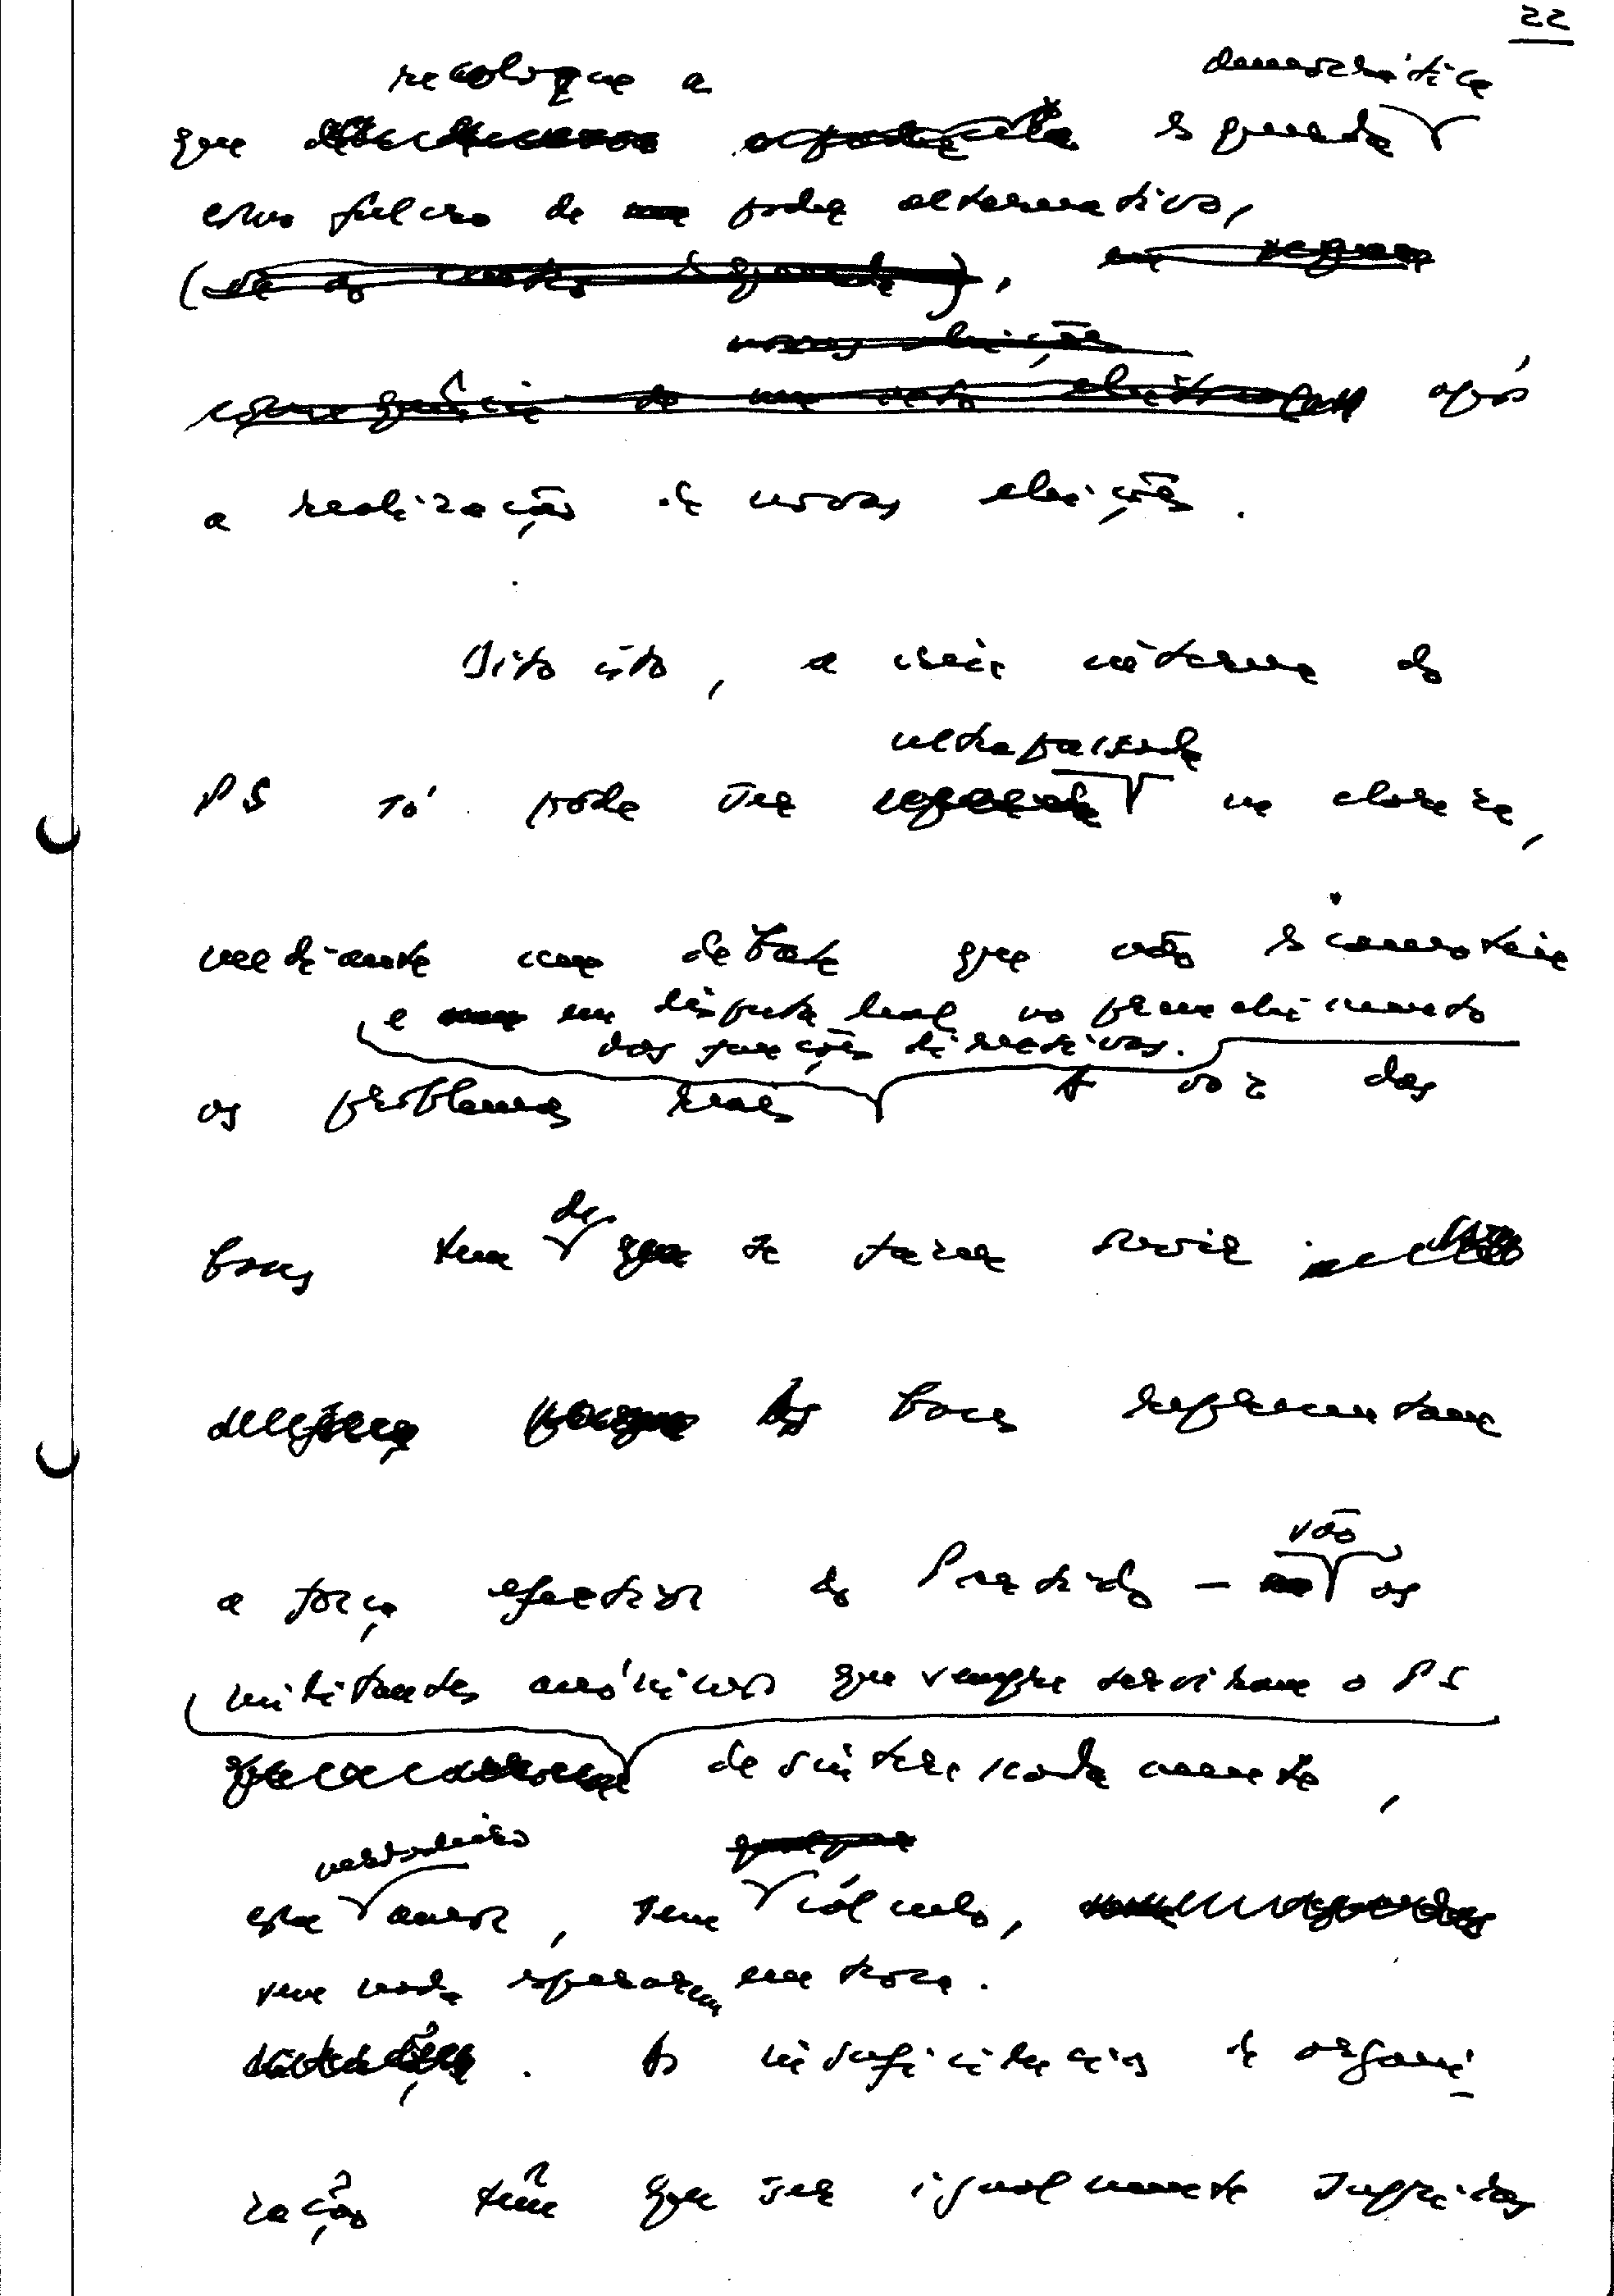 22
recoloque a democrática
que esquerda
como fulcro de poder alternativo,
após
a realização de novas eleições.
Dito isto, a crise interna do
ultrapassada
PS só pode ser na clareza,
mediante um debate que não escamoteie
e em disputa leal no preenchimento
das funções directivas.
os problemas reais A voz das
de
bases tem se fazer ouvir
As bases representam
não
a força efectiva do Partido — os
militantes anónimos que sempre serviram o PS
desinteressadamente,
verdadeiro
com amor, sem cálculo,
sem nada esperarem em troca.
. As insuficiências de organi-
zação têm que ser igualmente supridas